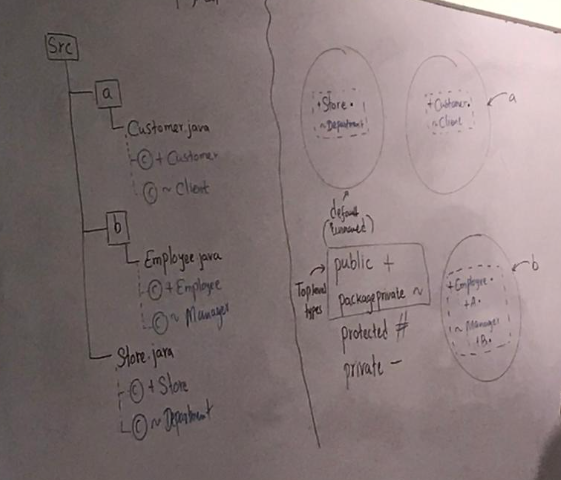 Src
a
Customer.java
© + Customer
© ~ Client
b
Employee.java
© + Employee
© ~ Manager
Store.java
© + Store
© ~ Department
+ Store •
~ Department
+ Customer •
~ Client
a
default
(unnamed)
Top level
types
public +
package private ~
protected #
private -
b
+ Employee •
+A •
~ Manager
+B •